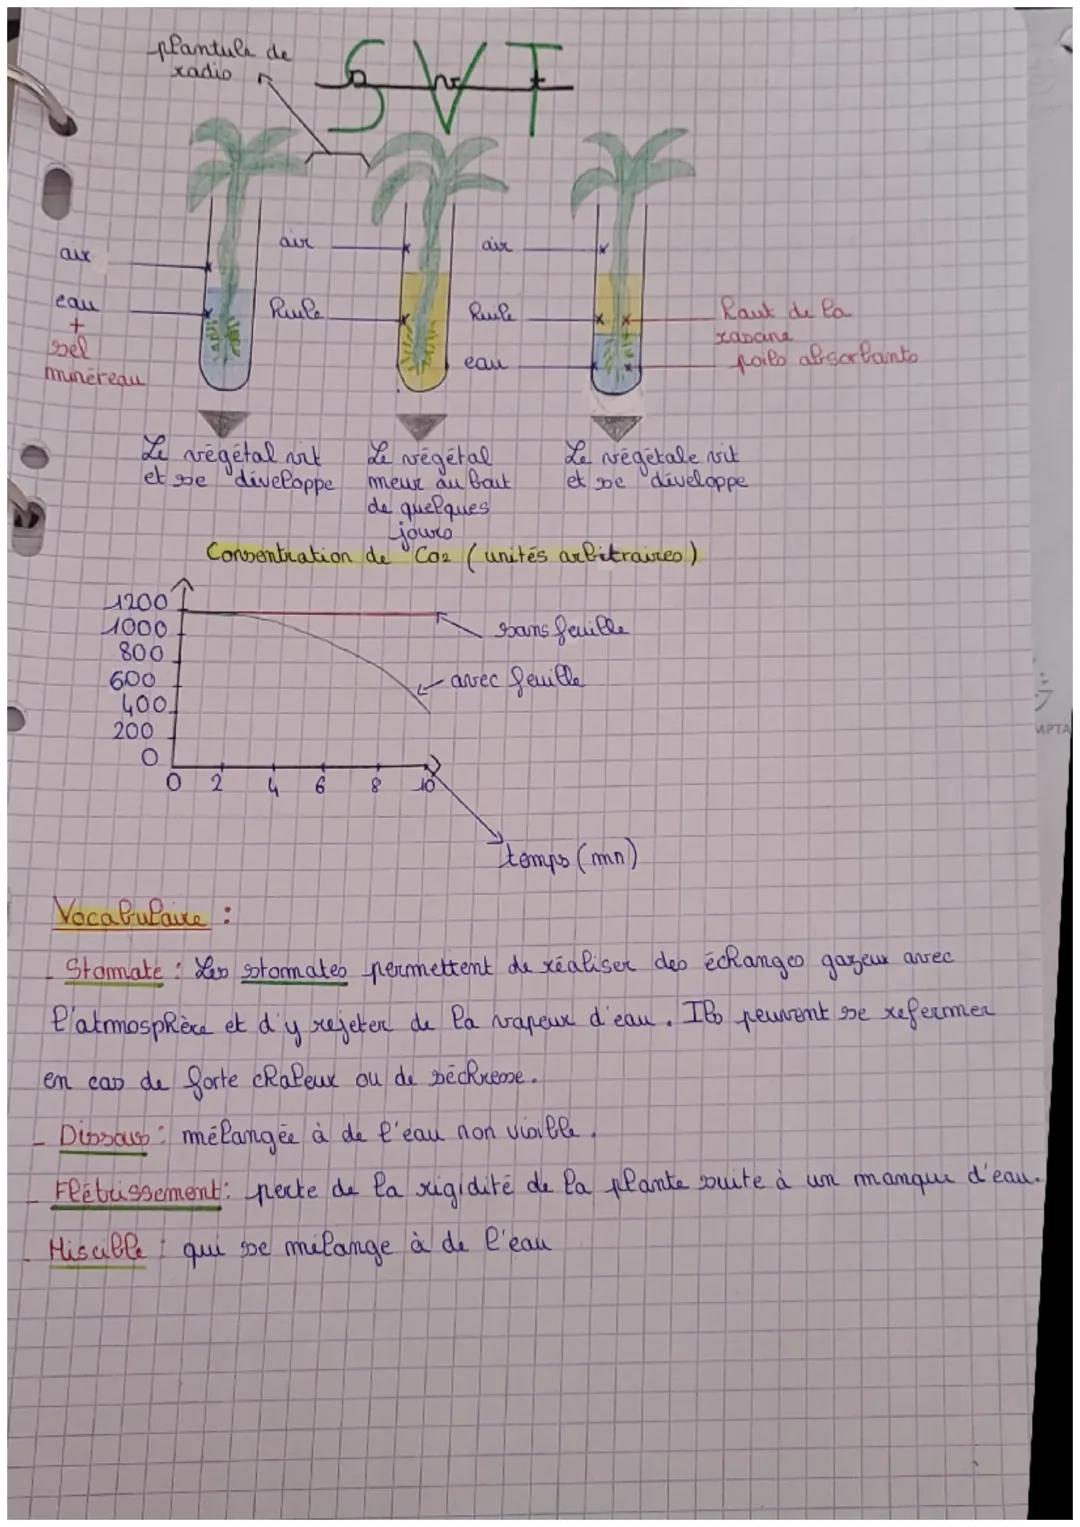 SVT
plantule de
radio
air
eau
+
sel
minéreau
air
huile
air
huile
eau
haut de la
racine
poils absorbants
Le végétal vit
et se développe
Le végétal
meur au bout
de quelques
jours
Le végétale vit
et se développe
Consentration de Co2 (unités arbitraires)
1200
1000
800
600
400
200
0
sans feuille
avec feuille
0 2 4 6 8 10
temps (mn)
Vocabulaire :
- Stomate : Les stomates permettent de réaliser des échanges gazeux avec
l'atmosphère et d'y rejeter de la vapeur d'eau. Ils peuvent se refermer
en cas de forte chaleur ou de séchresse.
- Dissous : mélangée à de l'eau non visible.
- Flétrissement : perte de la rigidité de la plante suite à un manque d'eau.
- Miscible : qui se mélange à de l'eau
MPTA